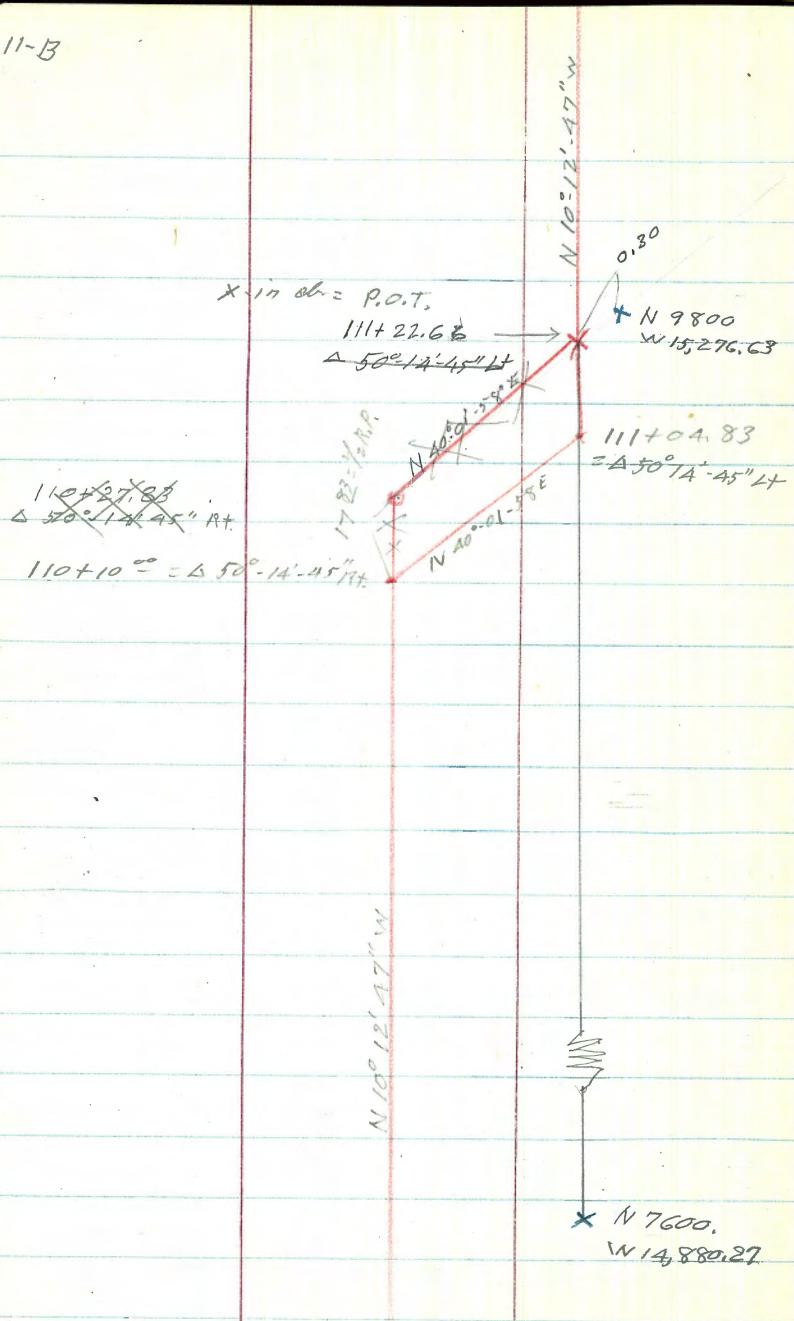 11-B
N 10°-12'-47" W
0.30
X-in = P.O.T.
111+22.66
Δ 50°-14'-45" Lt
N 9800
W 15,276.63
N 40°-01'-58" E
111+04.83
= Δ 50°14'-45" Lt
17.83 = R.P.
110+27.83
Δ 50°-14'-45" Rt.
N 40°-01'-58 E
110+10 00 = Δ 50°-14'-45" Rt.
N 10° 12' 47" W
N 7600.
W 14,880.27